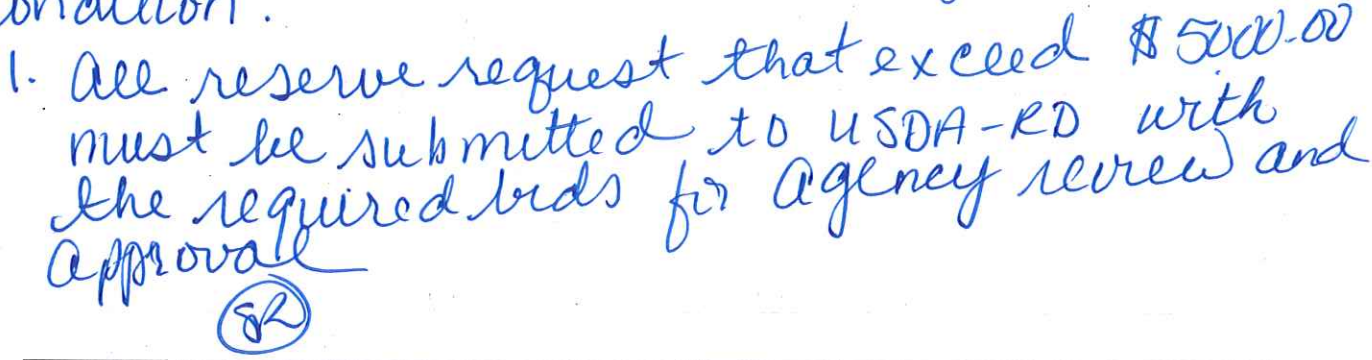 condition.
1. All reserve request that exceed $5000.00
must be submitted to USDA-RD with
the required bids for Agency review and
approval